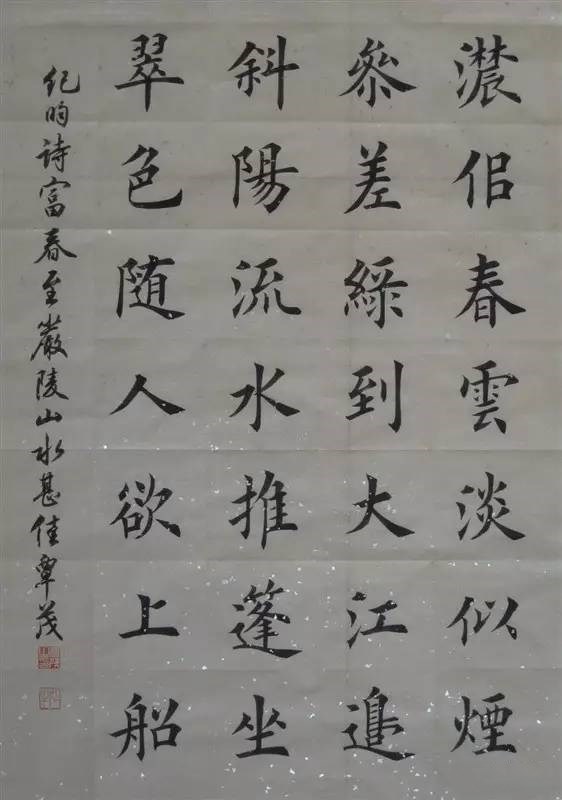 濃佀春雲淡似煙
叅差綠到大江邊
斜陽流水推篷坐
翠色随人欲上船
紀昀詩富春至嚴陵山水甚佳覃茂